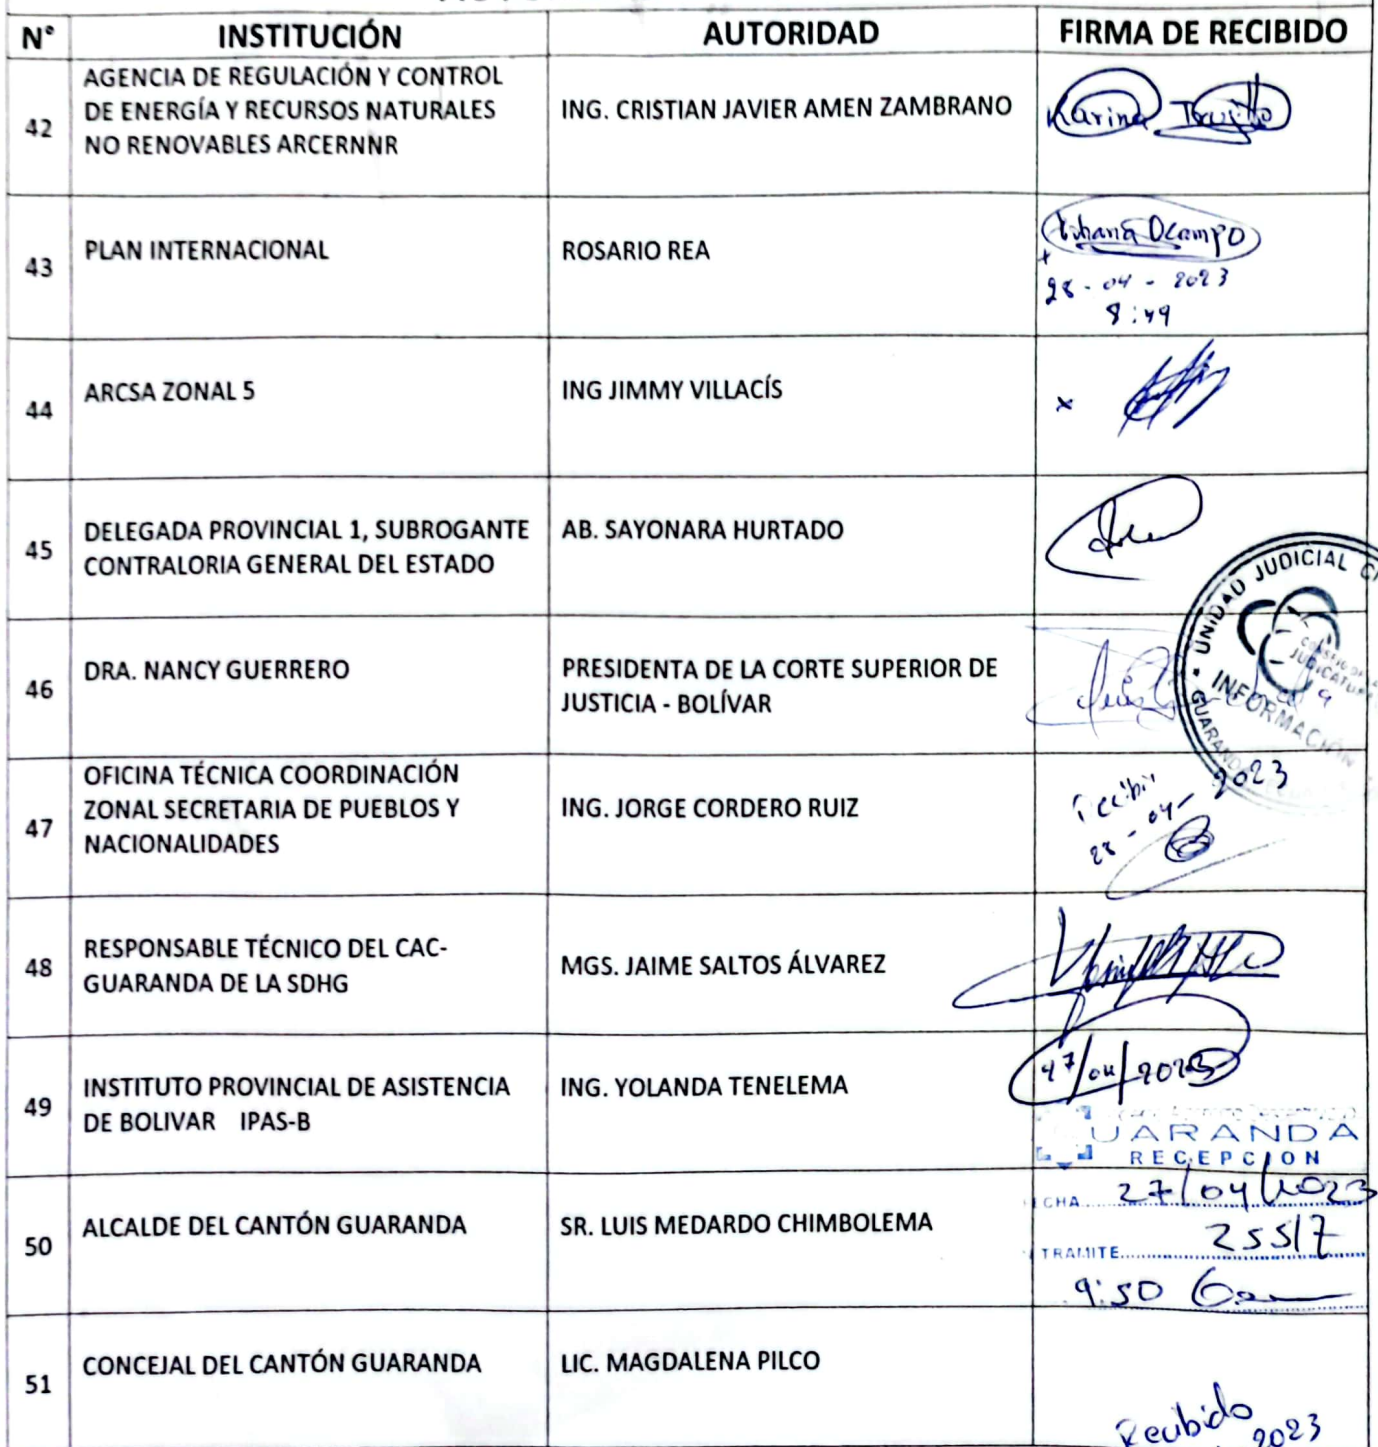 N° INSTITUCIÓN AUTORIDAD FIRMA DE RECIBIDO
42
AGENCIA DE REGULACIÓN Y CONTROL
DE ENERGÍA Y RECURSOS NATURALES
NO RENOVABLES ARCERNNR
ING. CRISTIAN JAVIER AMEN ZAMBRANO
Karina Trujillo
43
PLAN INTERNACIONAL
ROSARIO REA
Ocampo
28-04-2023
8:49
44
ARCSA ZONAL 5
ING JIMMY VILLACÍS
x
45
DELEGADA PROVINCIAL 1, SUBROGANTE
CONTRALORIA GENERAL DEL ESTADO
AB. SAYONARA HURTADO
UNIDAD JUDICIAL
CONSEJO DE LA
JUDICATURA
INFORMACIÓN
GUARANDA
46
DRA. NANCY GUERRERO
PRESIDENTA DE LA CORTE SUPERIOR DE
JUSTICIA - BOLÍVAR
47
OFICINA TÉCNICA COORDINACIÓN
ZONAL SECRETARIA DE PUEBLOS Y
NACIONALIDADES
ING. JORGE CORDERO RUIZ
Recibí
28-04-2023
48
RESPONSABLE TÉCNICO DEL CAC-
GUARANDA DE LA SDHG
MGS. JAIME SALTOS ÁLVAREZ
49
INSTITUTO PROVINCIAL DE ASISTENCIA
DE BOLIVAR IPAS-B
ING. YOLANDA TENELEMA
/04/2023
UARANDA
RECEPCION
50
ALCALDE DEL CANTÓN GUARANDA
SR. LUIS MEDARDO CHIMBOLEMA
ECHA 27/04/2023
TRAMITE 25517
9:50
51
CONCEJAL DEL CANTÓN GUARANDA
LIC. MAGDALENA PILCO
Recibido
2023